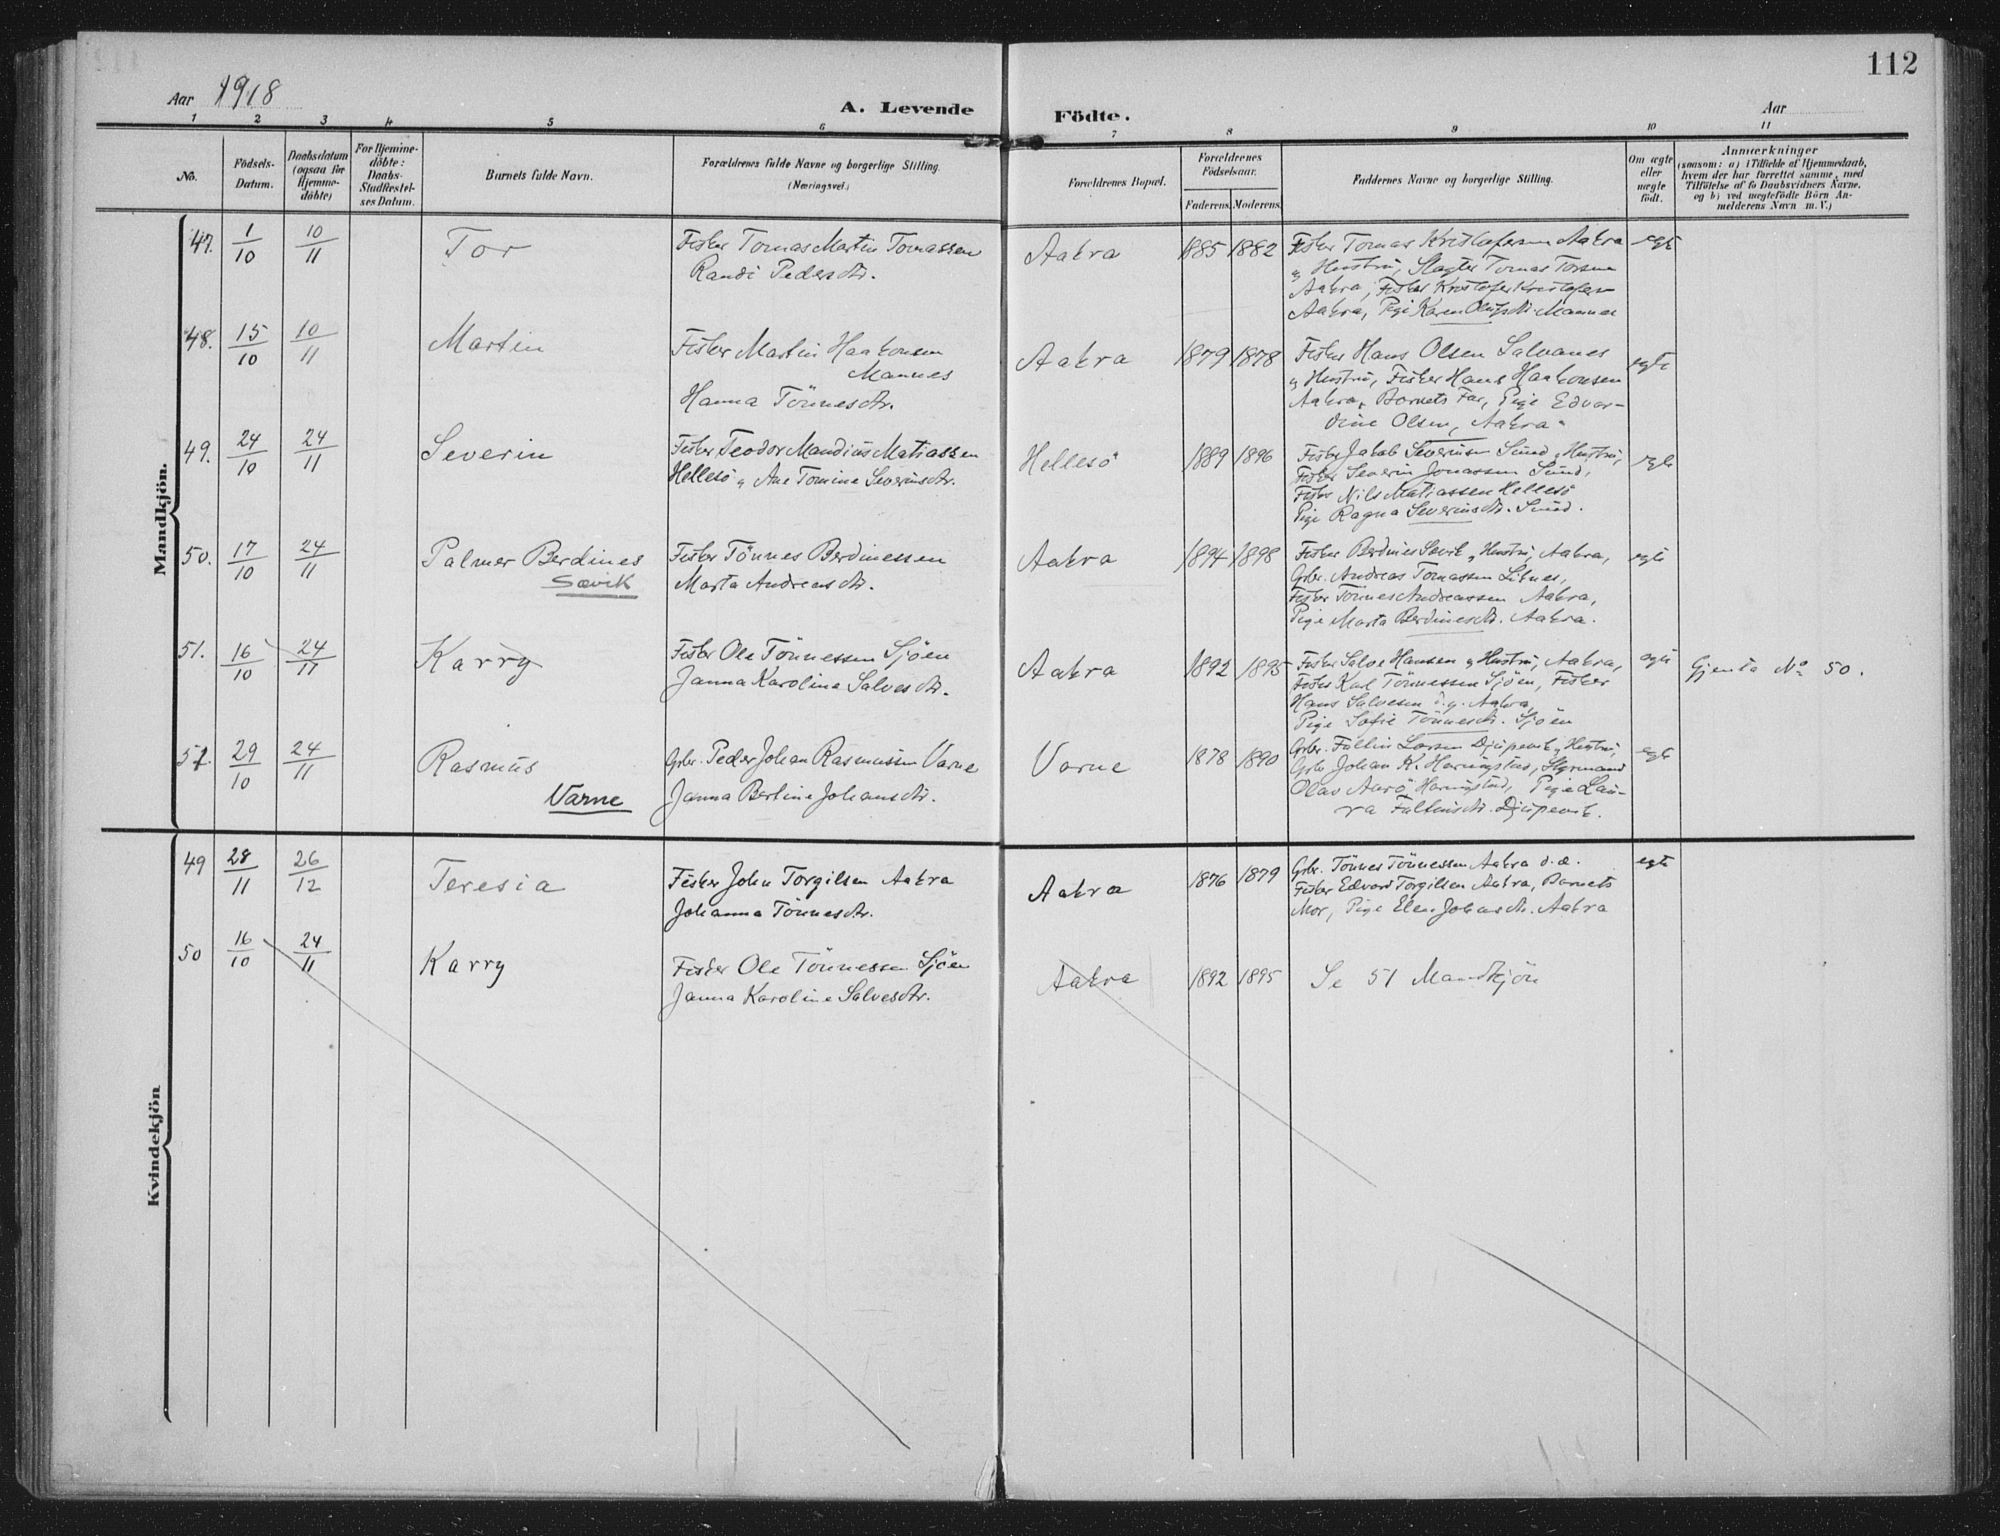 112
Aar 1918
A. Levende
Födte.
Aar
1 2 3 4 5 6 7 8 9 10 11
No.
Födsels-
Datum.
Daabsdatum
(ogsaa for
Hjemme-
döbte)
For Hjemme-
döbte:
Daabs-
Stadfæstel-
ses Datum.
Barnets fulde Navn.
Forældrenes fulde Navne og borgerlige Stilling.
(Næringsvei.)
Forældrenes Bopæl.
Forældrenes
Födselsaar.
Faderens. Moderens.
Faddernes Navne og borgerlige Stilling.
Om ægte
eller
uægte
født.
Anmærkninger
(saasom: a) i Tilfælde af Hjemmedaab,
hvem der har forrettet samme, med
Tilföielse af to Daabsvidners Navne,
og b) ved uægtefödte Börn An-
melderens Navn m. V.)
Mandkjön.
47. 1/10 10/11 Tor
Fisker Tomas Martin Tomassen
Randi Pedersdtr.
Aakra 1885 1882
Fisker Tomas Kristofersen Aakra
og Hustru, Slagter Tomas Torsen
Aakra, Fisker Kristofer Kristofersen
Aakra, Pige Karen Olufsdtr. Mannes
egte
48. 15/10 10/11 Martin
Fisker Martin Haakonsen
Mannes
Hanna Tönnesdtr.
Aakra 1879 1878
Fisker Hans Olsen Salvanes
og Hustru, Fisker Hans Haakonsen
Aakra, Barnets Far, Pige Edvar-
dine Olsen, Aakra.
egte
49. 24/10 24/11 Severin
Fisker Teodor Mandius Matiassen
Hellesö og Ane Tomine Severinsdtr.
Hellesö 1889 1896
Fisker Jakob Severinsen Sund og Hustru,
Fisker Severin Jonassen Sund,
Fisker Nils Matiassen Hellesö
Pige Ragna Severinsdtr. Sund.
egte
50. 17/10 24/11 Palmer Berdines
Sævik
Fisker Tönnes Berdinessen
Marta Andreasdtr.
Aakra 1894 1898
Fisker Berdines Sævik og Hustru, Aakra,
Grbr. Andreas Tomassen Liknes,
Fisker Tönnes Andreassen Aakra,
Pige Marta Berdinesdtr. Aakra.
egte
51. 16/10 24/11 Karry
Fisker Ole Tönnessen Sjöen
Janna Karoline Salvesdtr.
Aakra 1892 1895
Fisker Salve Hansen og Hustru, Aakra,
Fisker Karl Tönnessen Sjöen, Fisker
Hans Salvesen d.y. Aakra,
Pige Sofie Tönnesdtr. Sjöen
egte
Gjenta No 50.
51. 29/10 24/11 Rasmus
Varne
Grbr. Peder Johan Rasmussen Varne
Janna Bertine Johansdtr.
Varne 1878 1890
Grbr. Larsen Djupevik og Hustru,
Grbr. Johan K. Haringstad, Styrmand
Olav Haringstad, Pige Lau-
ra Djupevik.
egte
Kvindekjön
49 28/11 26/12 Teresia
Fisker John Torgilsen Aakra
Johanna Tönnesdtr.
Aakra 1876 1879
Grbr. Tönnes Tönnessen Aakra d.æ.
Fisker Edvard Torgilsen Aakra, Barnets
Mor, Pige Elen Johnsdtr. Aakra
egte
50 16/10 24/11 Karry
Fisker Ole Tönnessen Sjöen
Janna Karoline Salvesdtr.
Aakra 1892 1895
Se 51 Mandkjön